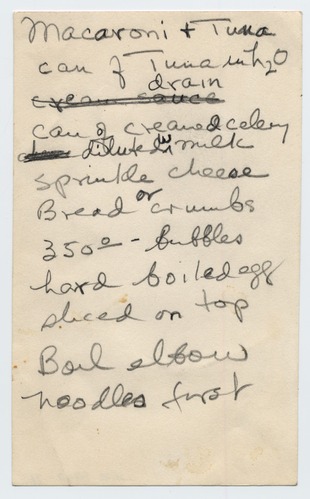 Macaroni + Tuna
can of Tuna in h2O
drain
cream sauce
can of creamed celery
diluted in milk
sprinkle cheese
or
Bread crumbs
350° - bubbles
hard boiled egg
sliced on top
Boil elbow
noodles first